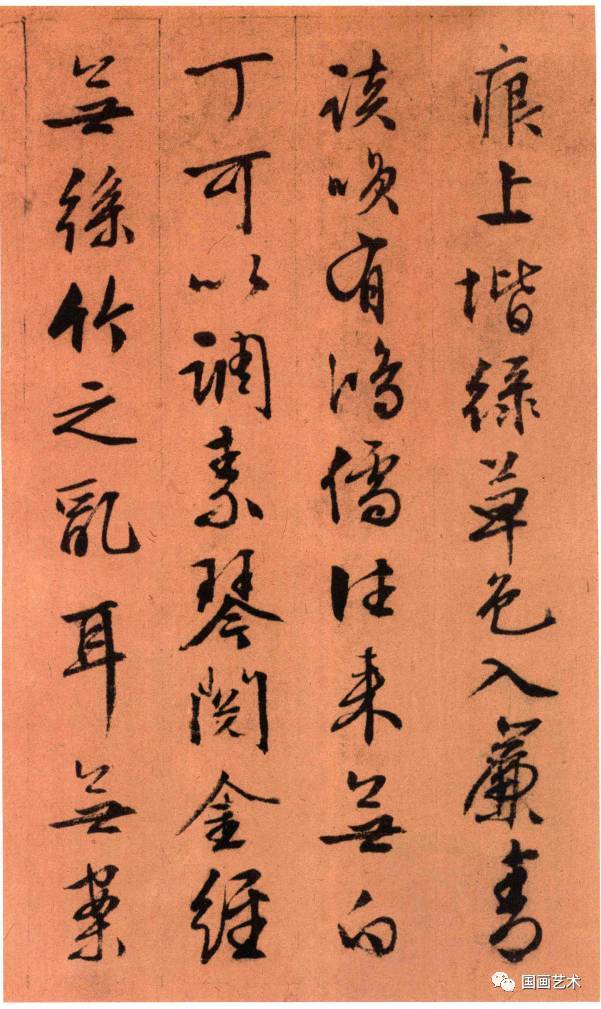 痕上堦綠草色入簾青
談咲有鴻儒往来無白
丁可以調素琴閱金經
無絲竹之亂耳無案
国画艺术